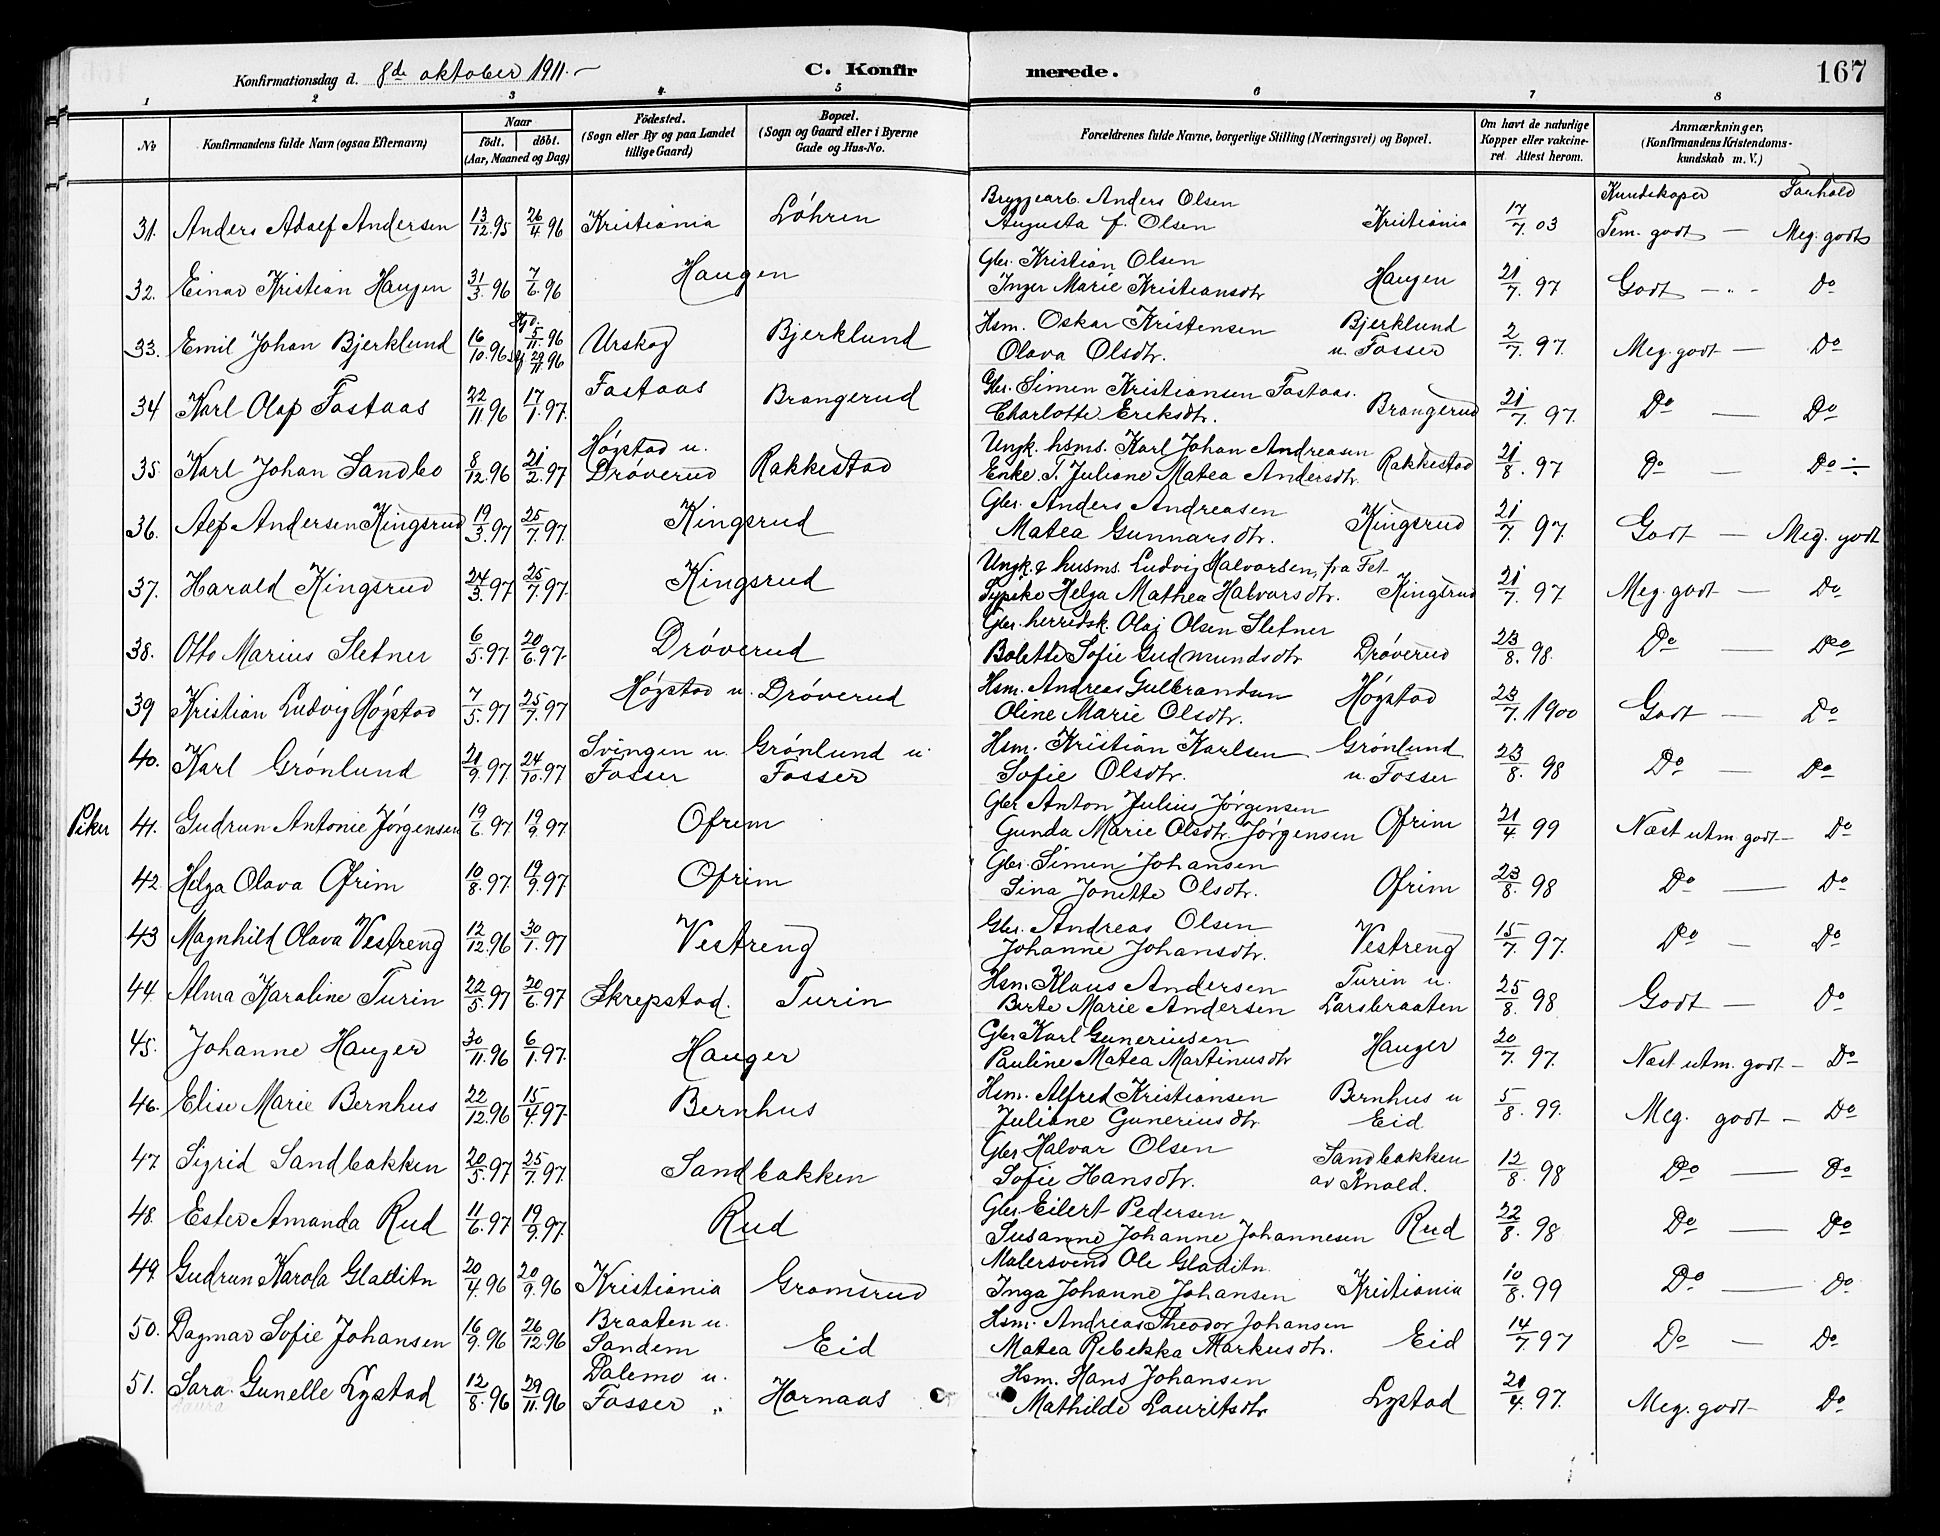 Konfirmationsdag d. 8de oktober 1911.
C. Konfirmerede.
167
1 2 3 4 5 6 7 8
No
Konfirmandens fulde Navn (ogsaa Efternavn)
Naar
födt. döbt.
(Aar, Maaned og Dag)
Födested.
(Sogn eller By og paa Landet tillige Gaard)
Bopæl.
(Sogn og Gaard eller i Byerne Gade og Hus-No.
Forældrenes fulde Navne, borgerlige Stilling (Næringsvei) og Bopæl.
Om havt de naturlige Kopper eller vakcineret. Attest herom.
Anmærkninger.
(Konfirmandens Kristendomskundskab m. V.)
Kundskaper Forhold
31. Anders Adolf Andersen 13/12.95 26/4.96 Kristiania Löhren Bryggearb. Anders Olsen Augusta f. Olsen Kristiania 17/7.03 Tem. godt — Meg. godt
32. Einar Kristian Haugen 31/3.96 7/6.96 Haugen Gbr. Kristian Olsen Inger Marie Kristiansdtr Haugen 21/7.97 Godt - " - Do
33. Emil Johan Bjerklund 16/10.96 5/11.96 29/11.96 Urskog Bjerklund Hsm. Oskar Kristensen Olava Olsdtr. Bjerklund u. Fosser 2/7.97. Meg. godt — Do
34 Karl Olaf Fastaas 22/11.96 17/1.97. Fastaas Brangerud Gbr. Simen Kristiansen Fastaas. Charlotte Eriksdtr. Brangerud 21/7.97. Do — Do
35. Karl Johan Sandbo 8/12.96 21/2.97 Högstad u. Dröverud Rakkestad Ungk. hsms. Karl Johan Andreasen Enke. T. Juliane Matea Andersdtr. Rakkestad 21/8.97 Do — Do ÷
36. Alf Andersen Kingsrud 19/3.97 25/7.97. Kingsrud Gbr. Anders Andreasen Matea Gunnarsdtr. Kingsrud 21/7.97. Godt — Meg. godt
37. Harald Kingsrud 24/3.97 25/7.97. Kingsrud Ungk. & husms. Ludvig Halvorsen, fra Fet Sypike Helga Mathea Halvorsdtr. Kingsrud 21/7.97. Meg. godt — Do
38. Otto Marius Sletner 6/5.97. 20/6.97. Dröverud Gbr. herredsk. Olaj Olsen Sletner Bolette Sofie Gudmundsdtr Dröverud 23/8.98. Do — Do
39 Kristian Ludvig Högstad 7/5.97 25/7.97 Högstad u. Dröverud Hsm. Andreas Gulbrandsen Oline Marie Olsdtr. Högstad 23/7.1900 Godt — Do
40. Karl Grönlund 21/9.97. 24/10.97. Svingen u. Fosser Grönlund u. Fosser Hsm. Kristian Karlsen Sofie Olsdtr. Grönlund u. Fosser 23/8.98 Do — Do
Piker 41. Gudrun Antonie Jörgensen 19/6.97 19/9.97 Ofrim Gbr Anton Julius Jörgensen Gunda Marie Olsdtr. Jörgensen Ofrim 21/4.99 Næst utm godt — Do
42. Helga Olava Ofrim 10/8.97. 19/9.97. Ofrim Gbr. Simen Johansen Sina Jonette Olsdtr. Ofrim 23/8.98 Do — Do
43 Magnhild Olava Vestreng 12/12.96 30/1.97 Vestreng Gbr. Andreas Olsen Johanne Johansdtr. Vestreng 15/7.97. Do — Do
44. Alma Karoline Turin 22/5.97 20/6.97 Skrepstad. Turin Hsm. Klaus Andersen Berte Marie Andersen Turin u. Larsbraaten 25/8.98 Godt — Do
45. Johanne Hauger 30/11.96 6/1.97. Hauger Gbr Karl Guneriusen Pauline Matea Martinusdtr Hauger 20/7.97. Næst utm. godt — Do
46. Elise Marie Bernhus 22/12.96 15/4.97. Bernhus Hsm. Alfred Kristiansen Juliane Guneriusdtr Bernhus u Eid 5/8.99. Meg. godt — Do
47 Sigrid Sandbakken 20/5.97 25/7.97. Sandbakken Gbr Halvor Olsen Sofie Hansdtr. Sandbakken av Knold. 12/8.98 Do — Do
48. Ester Amanda Rud 11/6.97 19/9.97. Rud Gbr. Eilert Pedersen Susanne Johanne Johannesen Rud 22/8.98 Do — Do
49. Gudrun Karola Gladitn 20/4.96 20/9.96 Kristiania Gromsrud Malersvend Ole Gladitn Inga Johanne Johansen Kristiania 10/8.99 Do — Do
50. Dagmar Sofie Johansen 16/9.96 26/12.96 Braaten u. Sandem Eid Hsm. Andreas Theodor Johansen Matea Rebekka Markusdtr. Eid 14/7.97 Do — Do
51. Sara Gunelle Lystad 12/8.96 29/11.96 Dalemo u. Fosser " Hornaas Hsm. Hans Johansen Mathilde Lauritsdtr Lystad 20/4.97. Meg. godt Do